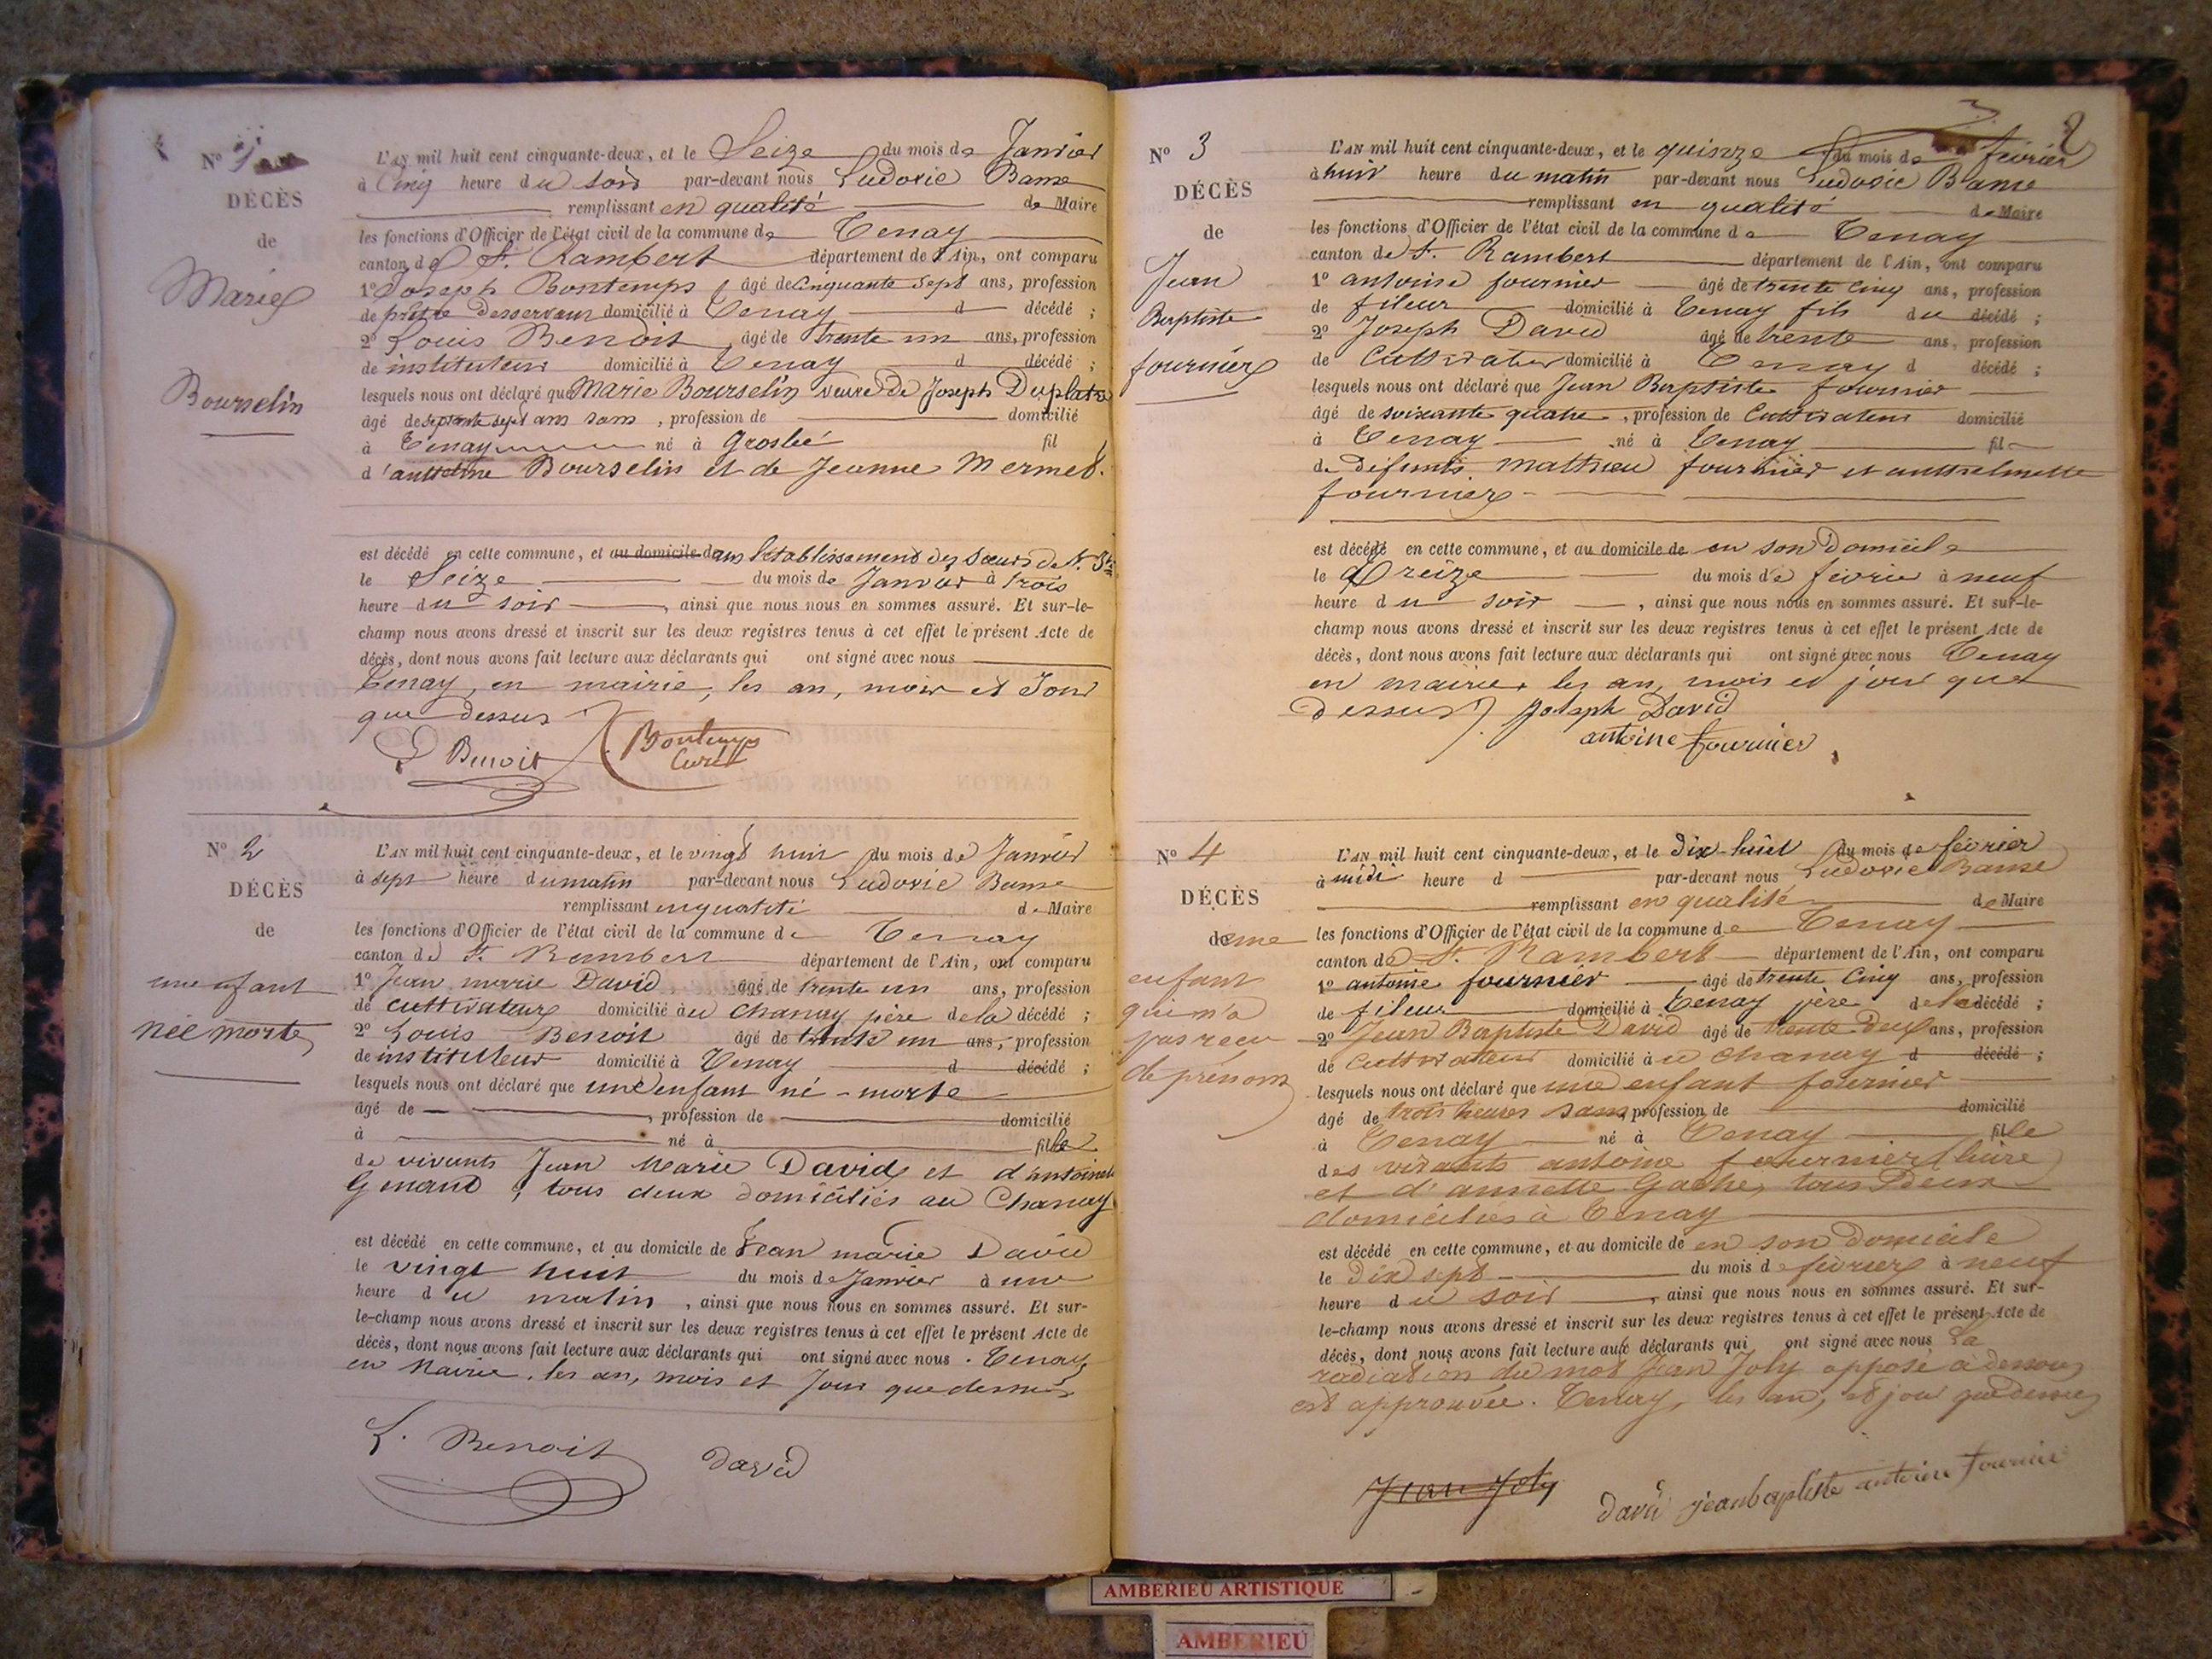 N° 1
DÉCÈS
de
Marie
Bourselin
L'AN mil huit cent cinquante-deux, et le Seize du mois de Janvier
à Cinq heure du soir par-devant nous Ludovic
remplissant en qualité de Maire
les fonctions d'Officier de l'état civil de la commune de Tenay
canton de St. Rambert département de l'Ain, ont comparu
1° Joseph Bontemps âgé de cinquante sept ans, profession
de prêtre desservant domicilié à Tenay d décédé ;
2° Louis Benoit, âgé de trente un ans, profession
de instituteur domicilié à Tenay d décédé ;
lesquels nous ont déclaré que Marie Bourselin veuve de Joseph Duplatre
âgé de septante sept ans sans, profession de domicilié
à Tenay né à Groslée fil
d'anthelme Bourselin et de Jeanne Mermet.
est décédé en cette commune, et au domicile dans l'établissement des Sœurs de
le Seize du mois de Janvier à trois
heure du soir, ainsi que nous nous en sommes assuré. Et sur-le-
champ nous avons dressé et inscrit sur les deux registres tenus à cet effet le présent Acte de
décès, dont nous avons fait lecture aux déclarants qui ont signé avec nous
Tenay, en mairie, les an, mois et Jour
que dessus
Benoit Bontemps
Curé
N° 2
DÉCÈS
de
une enfant
née morte
L'AN mil huit cent cinquante-deux, et le vingt huit du mois de Janvier
à sept heure du matin par-devant nous Ludovic
remplissant en qualité de Maire
les fonctions d'Officier de l'état civil de la commune de Tenay
canton de St. Rambert département de l'Ain, ont comparu
1° Jean marie David âgé de trente un ans, profession
de cultivateur domicilié au Chanay père de la décédé ;
2° Louis Benoit âgé de trente un ans, profession
de instituteur domicilié à Tenay d décédé ;
lesquels nous ont déclaré que une enfant né-morte
âgé de , profession de domicilié
à né à fille
de vivants Jean Marie David et d'antoinette
tous deux domiciliés au Chanay
est décédé en cette commune, et au domicile de Jean marie David
le vingt huit du mois de Janvier à une
heure du matin, ainsi que nous nous en sommes assuré. Et sur-
le-champ nous avons dressé et inscrit sur les deux registres tenus à cet effet le présent Acte de
décès, dont nous avons fait lecture aux déclarants qui ont signé avec nous. Tenay
en Mairie, les an, mois et Jour que dessus
L. Benoit David
2
N° 3
DÉCÈS
de
Jean
Baptiste
fournier
L'AN mil huit cent cinquante-deux, et le quinze du mois de février
à huit heure du matin par-devant nous Ludovic
remplissant en qualité de Maire
les fonctions d'Officier de l'état civil de la commune de Tenay
canton de St. Rambert département de l'Ain, ont comparu
1° antoine fournier âgé de trente cinq ans, profession
de fileur domicilié à Tenay fils du décédé ;
2° Joseph David âgé de trente ans, profession
de Cultivateur domicilié à Tenay d décédé ;
lesquels nous ont déclaré que Jean Baptiste fournier
âgé de soixante quatre, profession de Cultivateur domicilié
à Tenay né à Tenay fil
de défunts mathieu fournier et anthelmette
fournier
est décédé en cette commune, et au domicile de en son Domicile
le treize du mois de février à neuf
heure du soir, ainsi que nous nous en sommes assuré. Et sur-le-
champ nous avons dressé et inscrit sur les deux registres tenus à cet effet le présent Acte de
décès, dont nous avons fait lecture aux déclarants qui ont signé avec nous Tenay
en mairie, les an, mois et jour que
dessus Joseph David
antoine fournier
N° 4
DÉCÈS
de une
enfant
qui n'a
pas reçu
de prénoms
L'AN mil huit cent cinquante-deux, et le Dix-huit du mois de février
à midi heure d par-devant nous Ludovic
remplissant en qualité de Maire
les fonctions d'Officier de l'état civil de la commune de Tenay
canton de St. Rambert département de l'Ain, ont comparu
1° antoine fournier âgé de trente cinq ans, profession
de fileur domicilié à Tenay père de la décédé ;
2° Jean Baptiste David âgé de trente Deux ans, profession
de Cultivateur domicilié à u Chanay d décédé ;
lesquels nous ont déclaré que une enfant fournier
âgé de trois heures sans profession de domicilié
à Tenay né à Tenay fille
des vivants antoine fournier
et d'annette Gache, tous Deux
domiciliés à Tenay
est décédé en cette commune, et au domicile de en son domicile
le Dix sept du mois de février à neuf
heure du soir, ainsi que nous nous en sommes assuré. Et sur-
le-champ nous avons dressé et inscrit sur les deux registres tenus à cet effet le présent Acte de
décès, dont nous avons fait lecture aux déclarants qui ont signé avec nous La
radiation du mot Jean Joly apposé ci dessous
est approuvée. Tenay, les an, et jour que dessus
Jean Joly David jeanbaptiste antoine fournier
AMBERIEU ARTISTIQUE
AMBERIEU